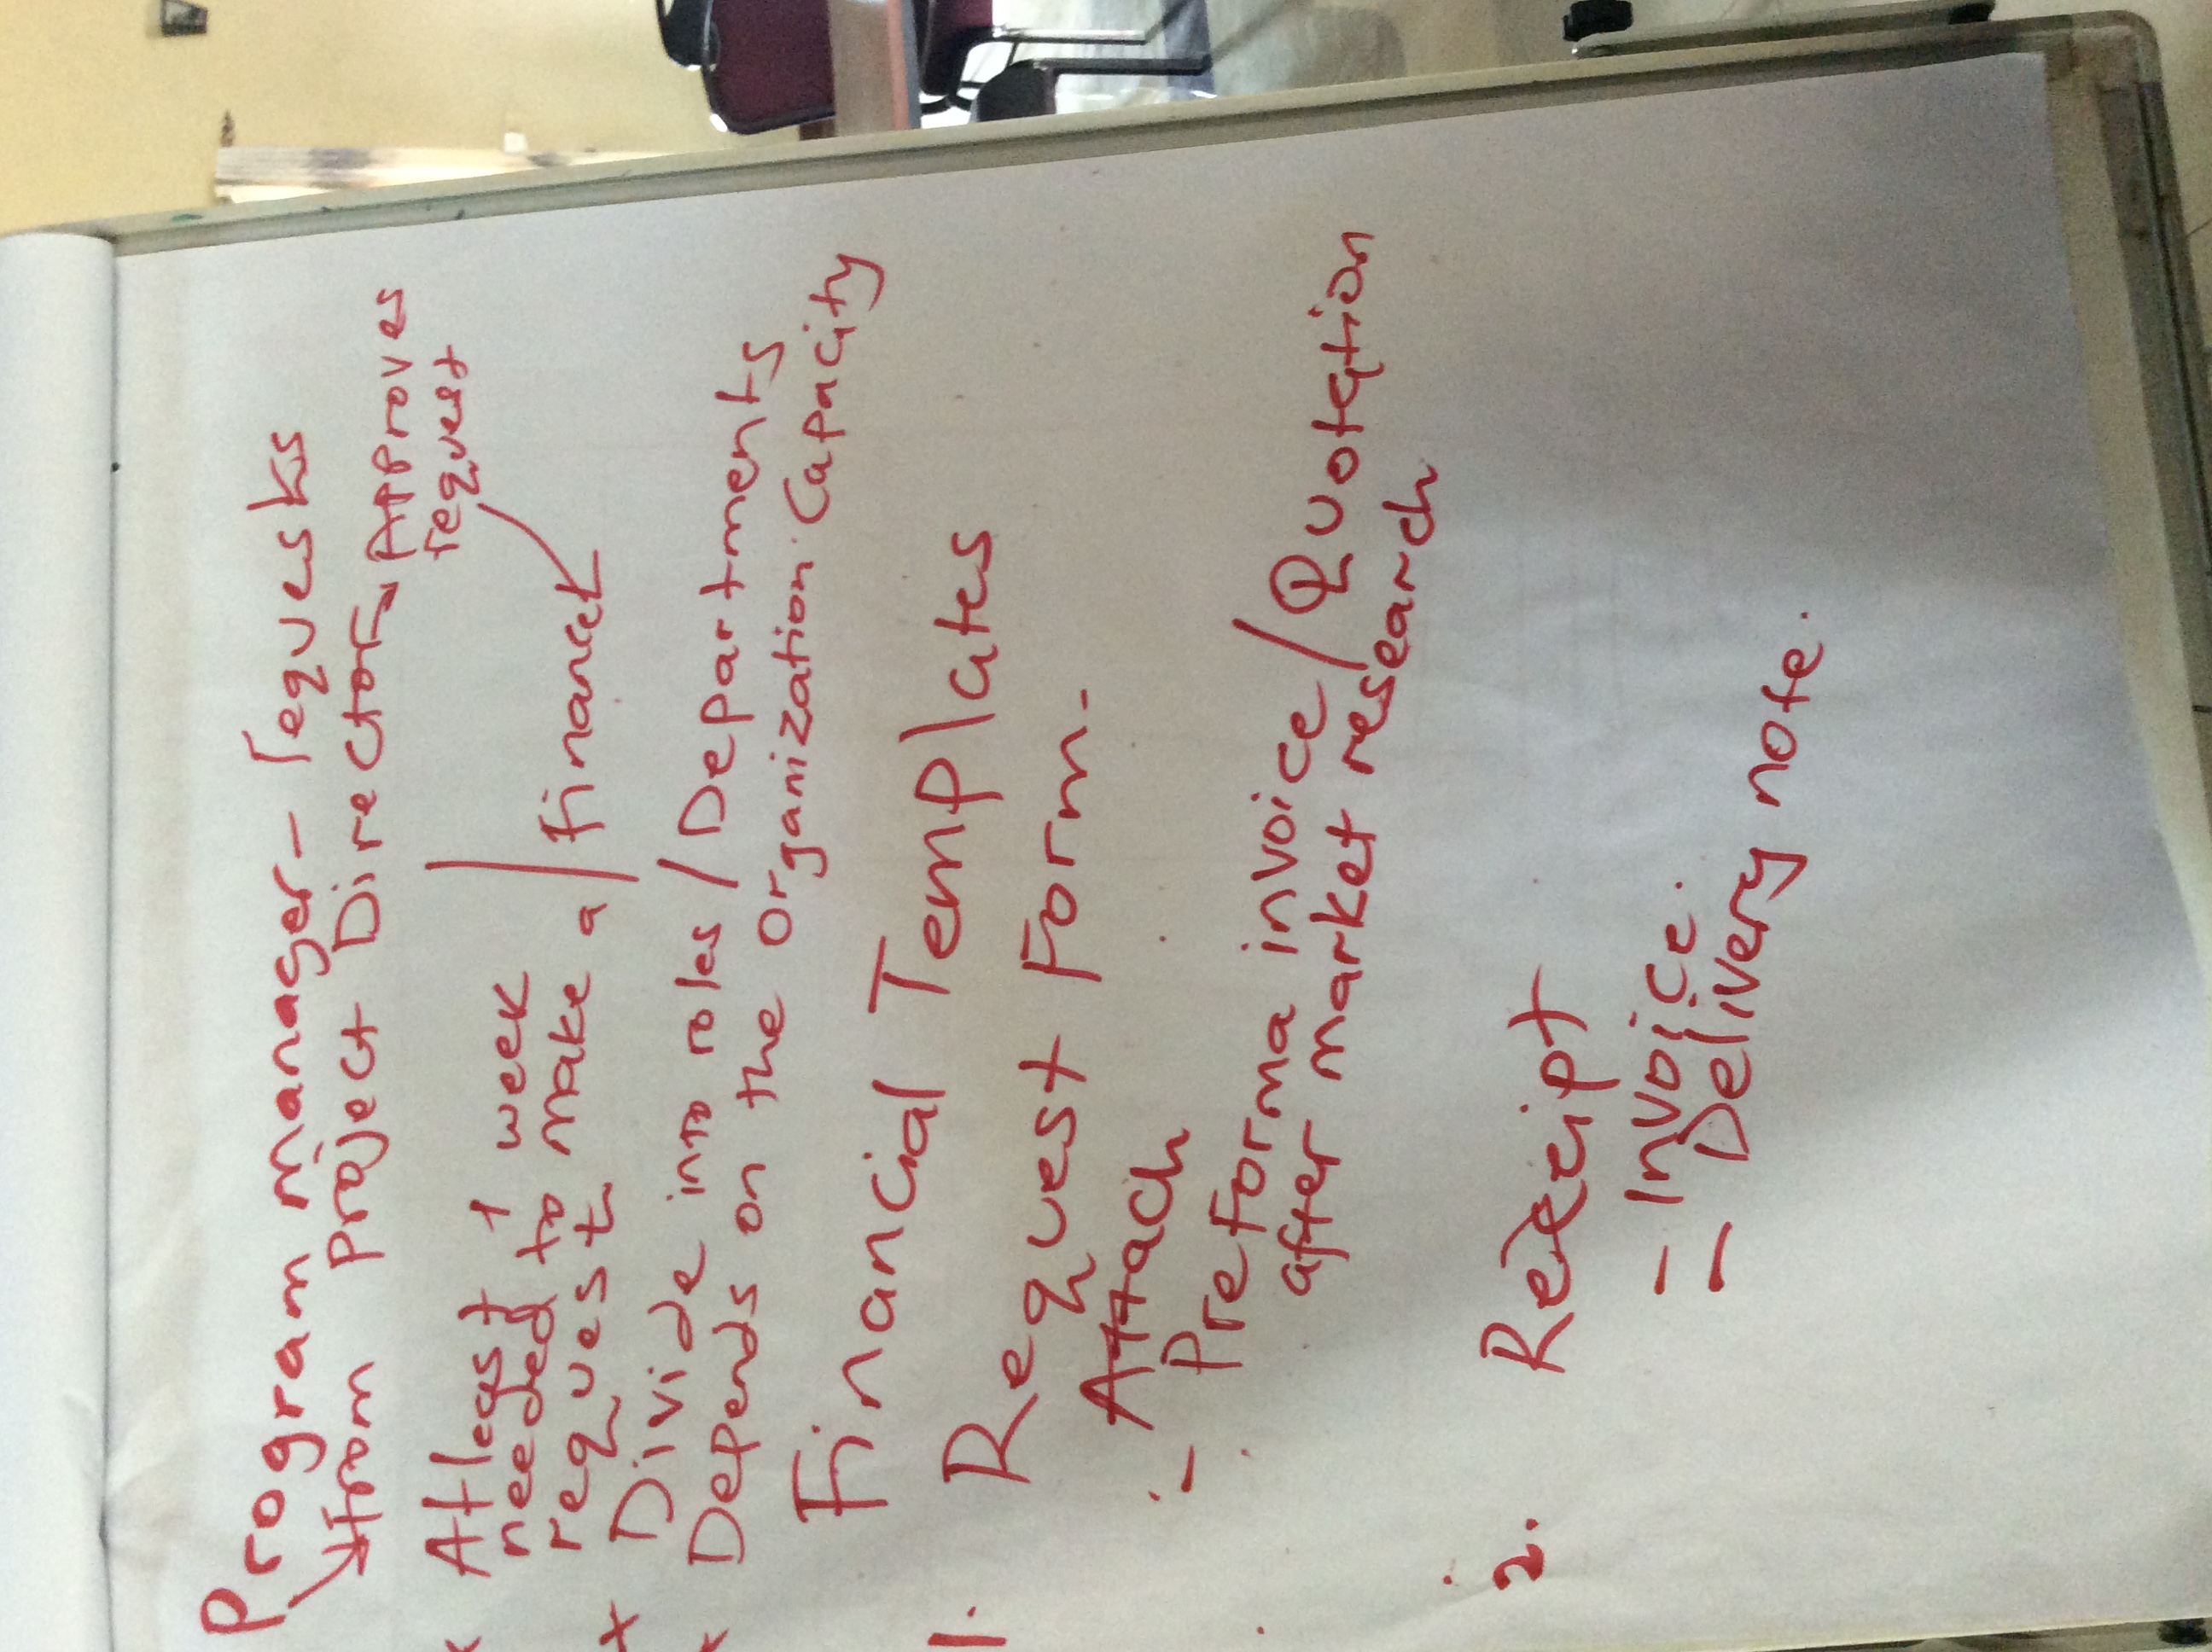 Program manager - requests
from project Director Approves
request
* Atleast 1 week
needed to make a / finance
request
* Divide into roles / Departments
* Depends on the Organization Capacity
Financial Templates
1. Request Form -
Attach
- Preforma invoice / Quotation
after market research
2. Receipt
- Invoice.
- Delivery note.